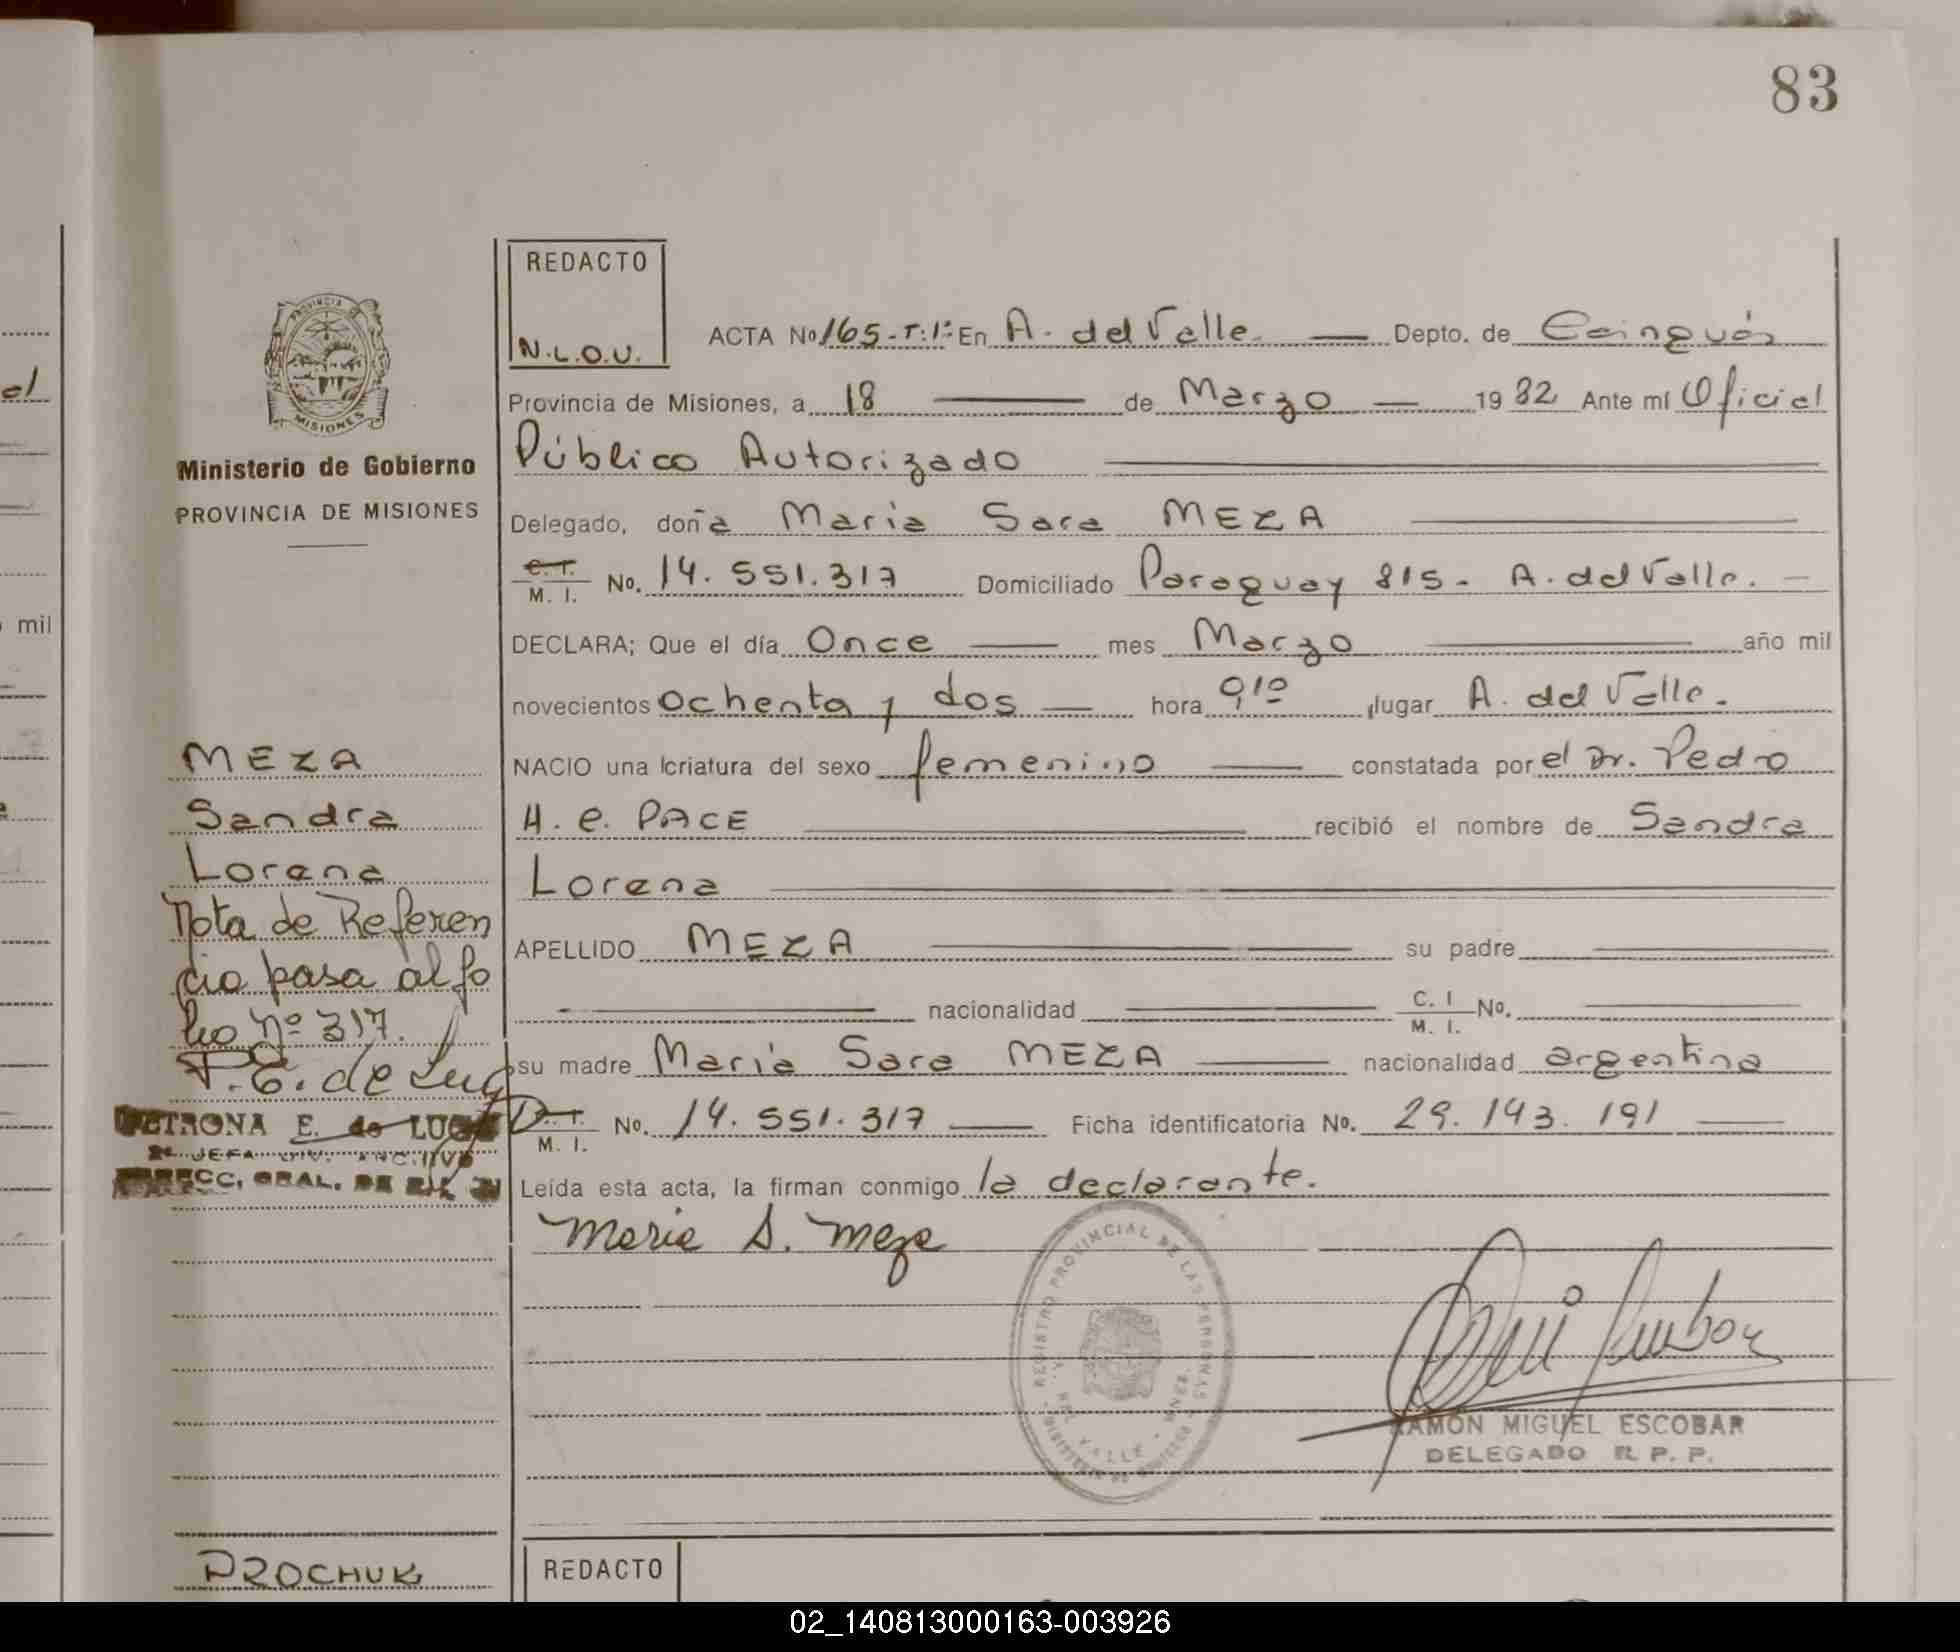 83
REDACTO
N.L.O.U.
ACTA No 165-T:1º En A. del Valle. Depto. de Cainguás
Provincia de Misiones, a 18 de Marzo 1982 Ante mí Oficial
Público Autorizado
Delegado, doña Maria Sara MEZA
C. I. / M. I. No. 14.551.317 Domiciliado Paraguay 815- A. del Valle.
DECLARA; Que el día Once mes Marzo año mil
novecientos ochenta y dos hora 9,10 lugar A. del Valle.
NACIO una criatura del sexo femenino constatada por el Dr. Pedro
H. C. PACE recibió el nombre de Sandra
Lorena
APELLIDO MEZA su padre
nacionalidad C. I / M. I. No.
su madre Maria Sara MEZA nacionalidad argentina
M. I. No. 14.551.317 Ficha identificatoria No. 29.143.191
Leída esta acta, la firman conmigo la declarante.
Maria S. Meza
RAMON MIGUEL ESCOBAR
DELEGADO R. P. P.
REGISTRO PROVINCIAL DE LAS PERSONAS
A. DEL VALLE - MNES.
PROVINCIA DE
MISIONES
Ministerio de Gobierno
PROVINCIA DE MISIONES
MEZA
Sandra
Lorena
Nota de Referen
cia pasa al fo
lio Nº 317.
P.E. de Lugo
PETRONA E. de LUGO
2º JEFA DIV. ARCHIVO
DIRECC. GRAL. DE
PROCHUK
REDACTO
el
mil
02_140813000163-003926